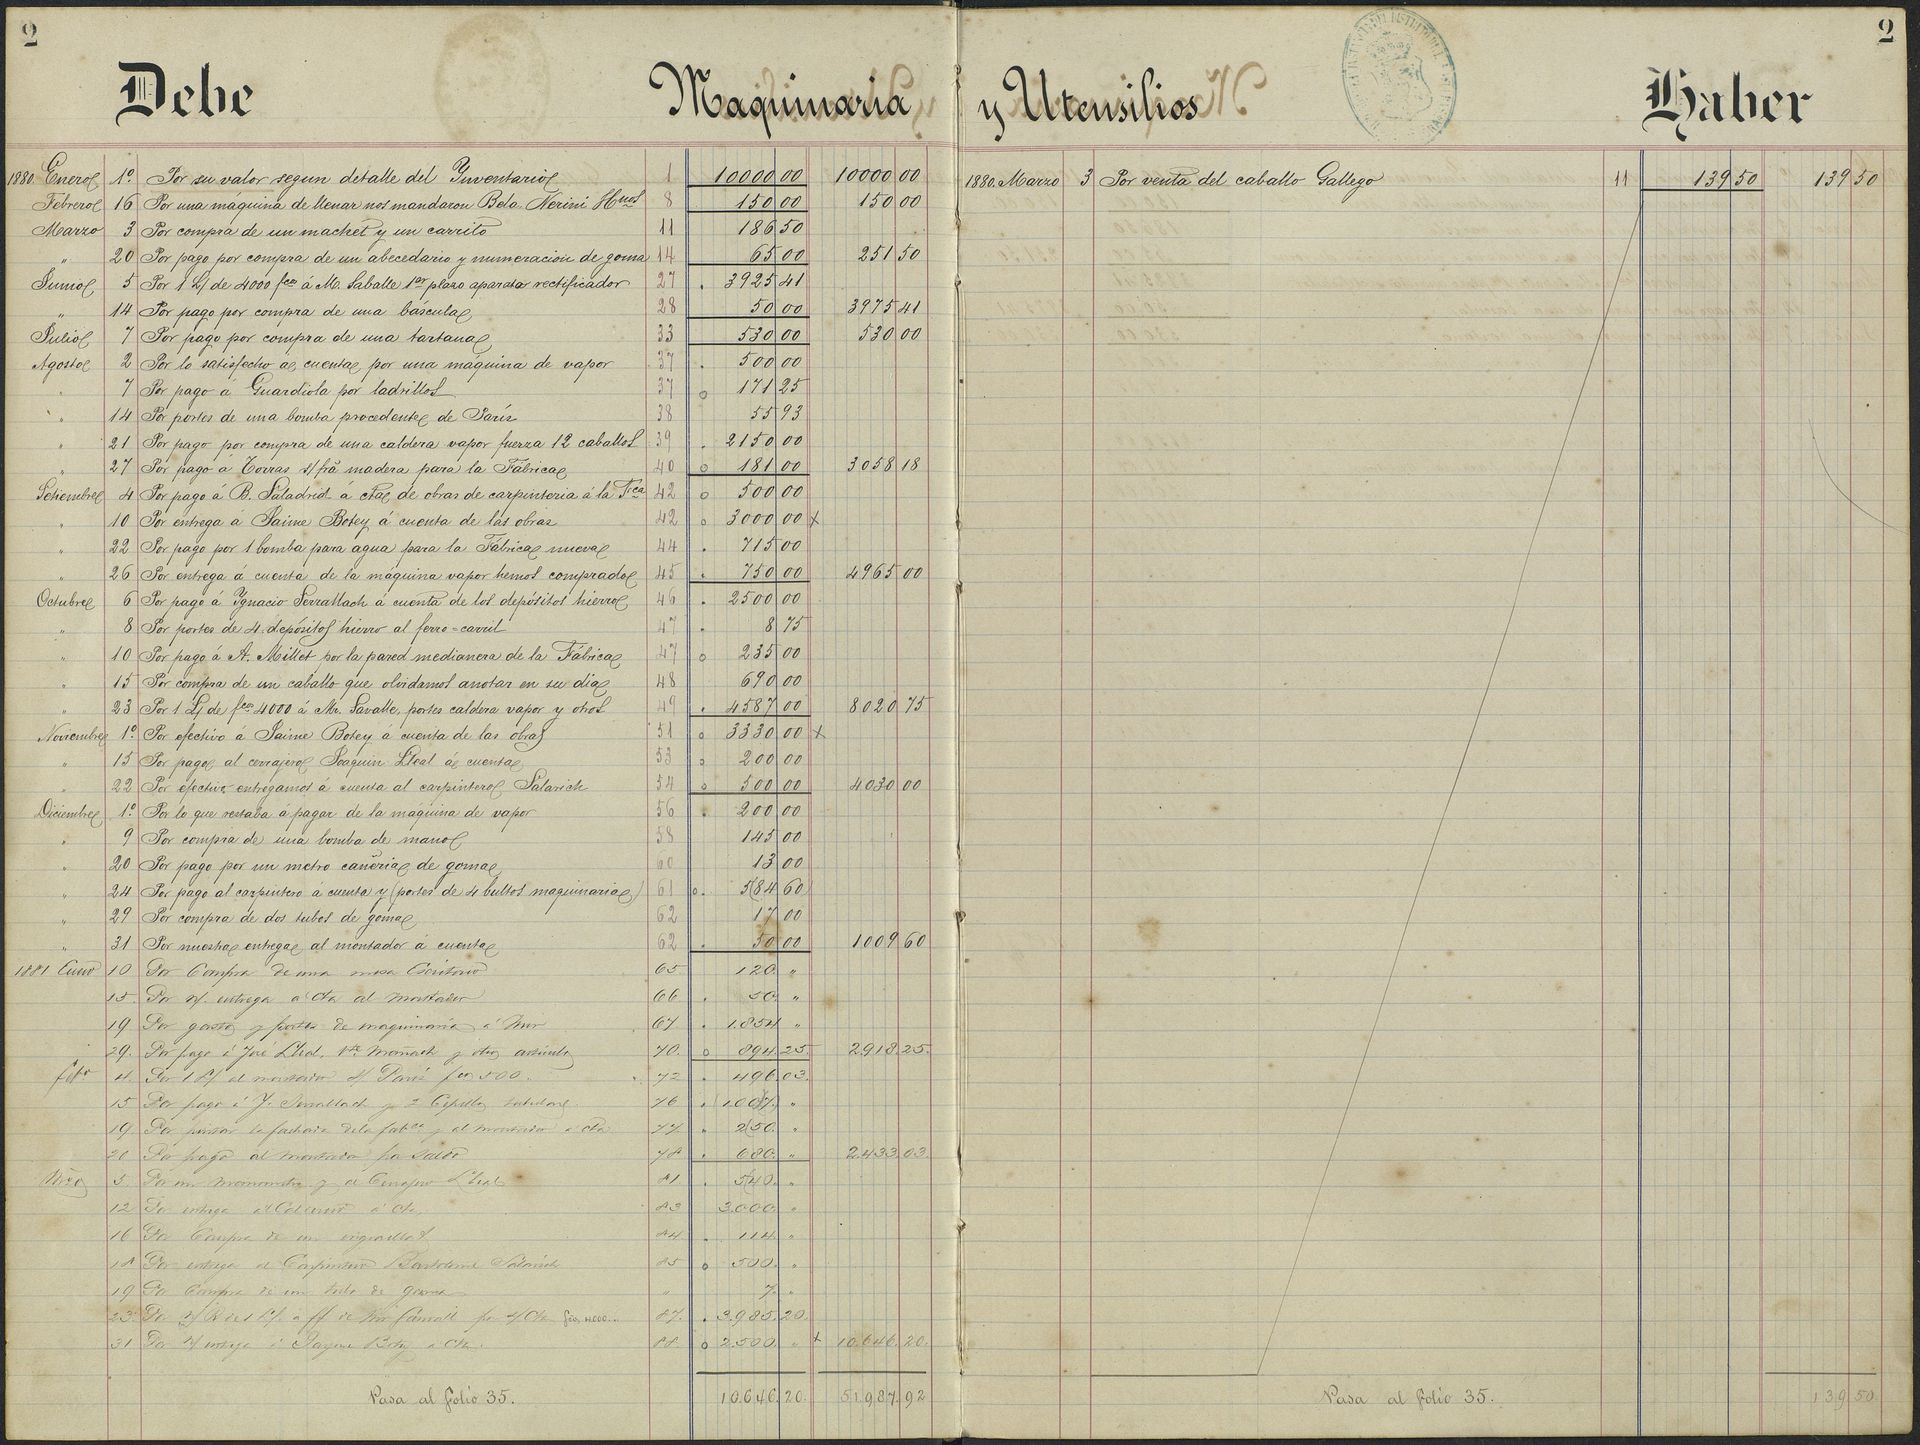 2
Debe Maquinaria
1880. Enero 1º Por su valor segun detalle del Ynventario 1 10000 00 10000 00
Febrero 16 Por una máquina de llenar nos mandaron Beda. Nerini Hnos 8 150 00 150 00
Marzo 3 Por compra de un machet y un carrito 11 186 50
" 20 Por pago por compra de un abecedario y numeracion de goma 14 65 00 251 50
Junio 5 Por 1 L/ de 4000 fcos á M. Saballe 1er plazo aparato rectificador 27 3925 41
" 14 Por pago por compra de una báscula 28 50 00 3975 41
Julio 7 Por pago por compra de una tartana 33 530 00 530 00
Agosto 2 Por lo satisfecho a cuenta por una maquina de vapor 37 500 00
" 7 Por pago á Guardiola por ladrillos 37 171 25
" 14 Por portes de una bomba procedente de Paris 38 55 93
" 21 Por pago por compra de una caldera vapor fuerza 12 caballos 39 2150 00
" 27 Por pago á Torras s/fra madera para la Fábrica 40 181 00 3058 18
Setiembre 4 Por pago á B. Saladrich á cta de obras de carpinteria á la Fca 42 500 00
" 10 Por entrega á Jaime Botey á cuenta de las obras 42 3000 00 x
" 22 Por pago por 1 bomba para agua para la Fábrica nueva 44 715 00
" 26 Por entrega á cuenta de la máquina vapor hemos comprado 45 750 00 4965 00
Octubre 6 Por pago á Ygnacio Serrallach á cuenta de los depósitos hierro 46 2500 00
" 8 Por portes de 4 depósitos hierro al ferro=carril 47 8 75
" 10 Por pago á A. Millet por la pared medianera de la Fábrica 47 235 00
" 15 Por compra de un caballo que olvidamos anotar en su dia 48 690 00
" 23 Por 1 L/ de fcos 4000 á Mr. Savalle, portes caldera vapor y otros 49 4587 00 8020 75
Noviembre 1º Por efectivo á Jaime Botey á cuenta de las obras 51 3330 00 x
" 15 Por pago al cerrajero Joaquin Lleal á cuenta 53 200 00
" 22 Por efectivo entregamos á cuenta al carpintero Salarich 54 500 00 4030 00
Diciembre 1º Por lo que restaba á pagar de la máquina de vapor 56 200 00
" 9 Por compra de una bomba de mano 58 145 00
" 20 Por pago por un metro cañeria de goma 60 13 00
" 24 Por pago al carpintero á cuenta y (portes de 4 bultos maquinaria) 61 584 60
" 29 Por compra de dos tubos de goma 62 17 00
" 31 Por nuestra entrega al montador á cuenta 62 50 00 1009 60
1881 Enero 10 Por Compra de una mesa Escritorio 65 120 "
15 Por n/. entrega a cta al montador 66 50 "
19 Por gastos y portes de maquinaria á 67 1.854 "
29. Por pago á José Lleal, y otros 70. 894.25. 2.918.25.
Febo 4. Por 1 L/ al montador s/ Paris fcos 500. 72 496.03.
15 Por pago á J. Serrallach y 2 76 "
19. Por pintar la fachada de la fabca y al montador a cta 77. 250. "
20 Por pago al montador por saldo 78 680. " 2.433.03.
Mzo 5. Por un manometro y al Cerrajero Lleal 81 540. "
12 Por entrega á cta. 83 3.000. "
16 Por Compra de un 84 114 "
18 Por entrega al Carpintero Bartolomé Salarich 85 500. "
19 Por Compra de un tubo de goma " 7. "
23. Por fcos 4.000. 87. 3.985.20.
31 Por n/ entrega á Jayme Botey a cta. 88. 2.500. " x 10.646.20.
Pasa al folio 35. 10.646.20. 51.987.92
2
y Utensilios Haber
1880. Marzo 3 Por venta del caballo Gallego 11 139 50 139 50
Pasa al folio 35. 139 50